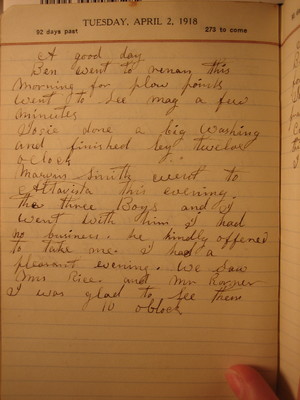 TUESDAY, APRIL 2, 1918
92 days past 273 to come
A good day
Ben went to renan this
Morning for plow points
went to See mag a few
minutes
Josie done a big washing
and finished by twelve
o clock
Marvin Smith went to
Altavista this evening.
the three Boys and I
went with him I had
no business. he kindly offered
to take me. I had a
pleasant evening. We Saw
Mrs Rice. and Mr
I was glad to See them
10 oblock